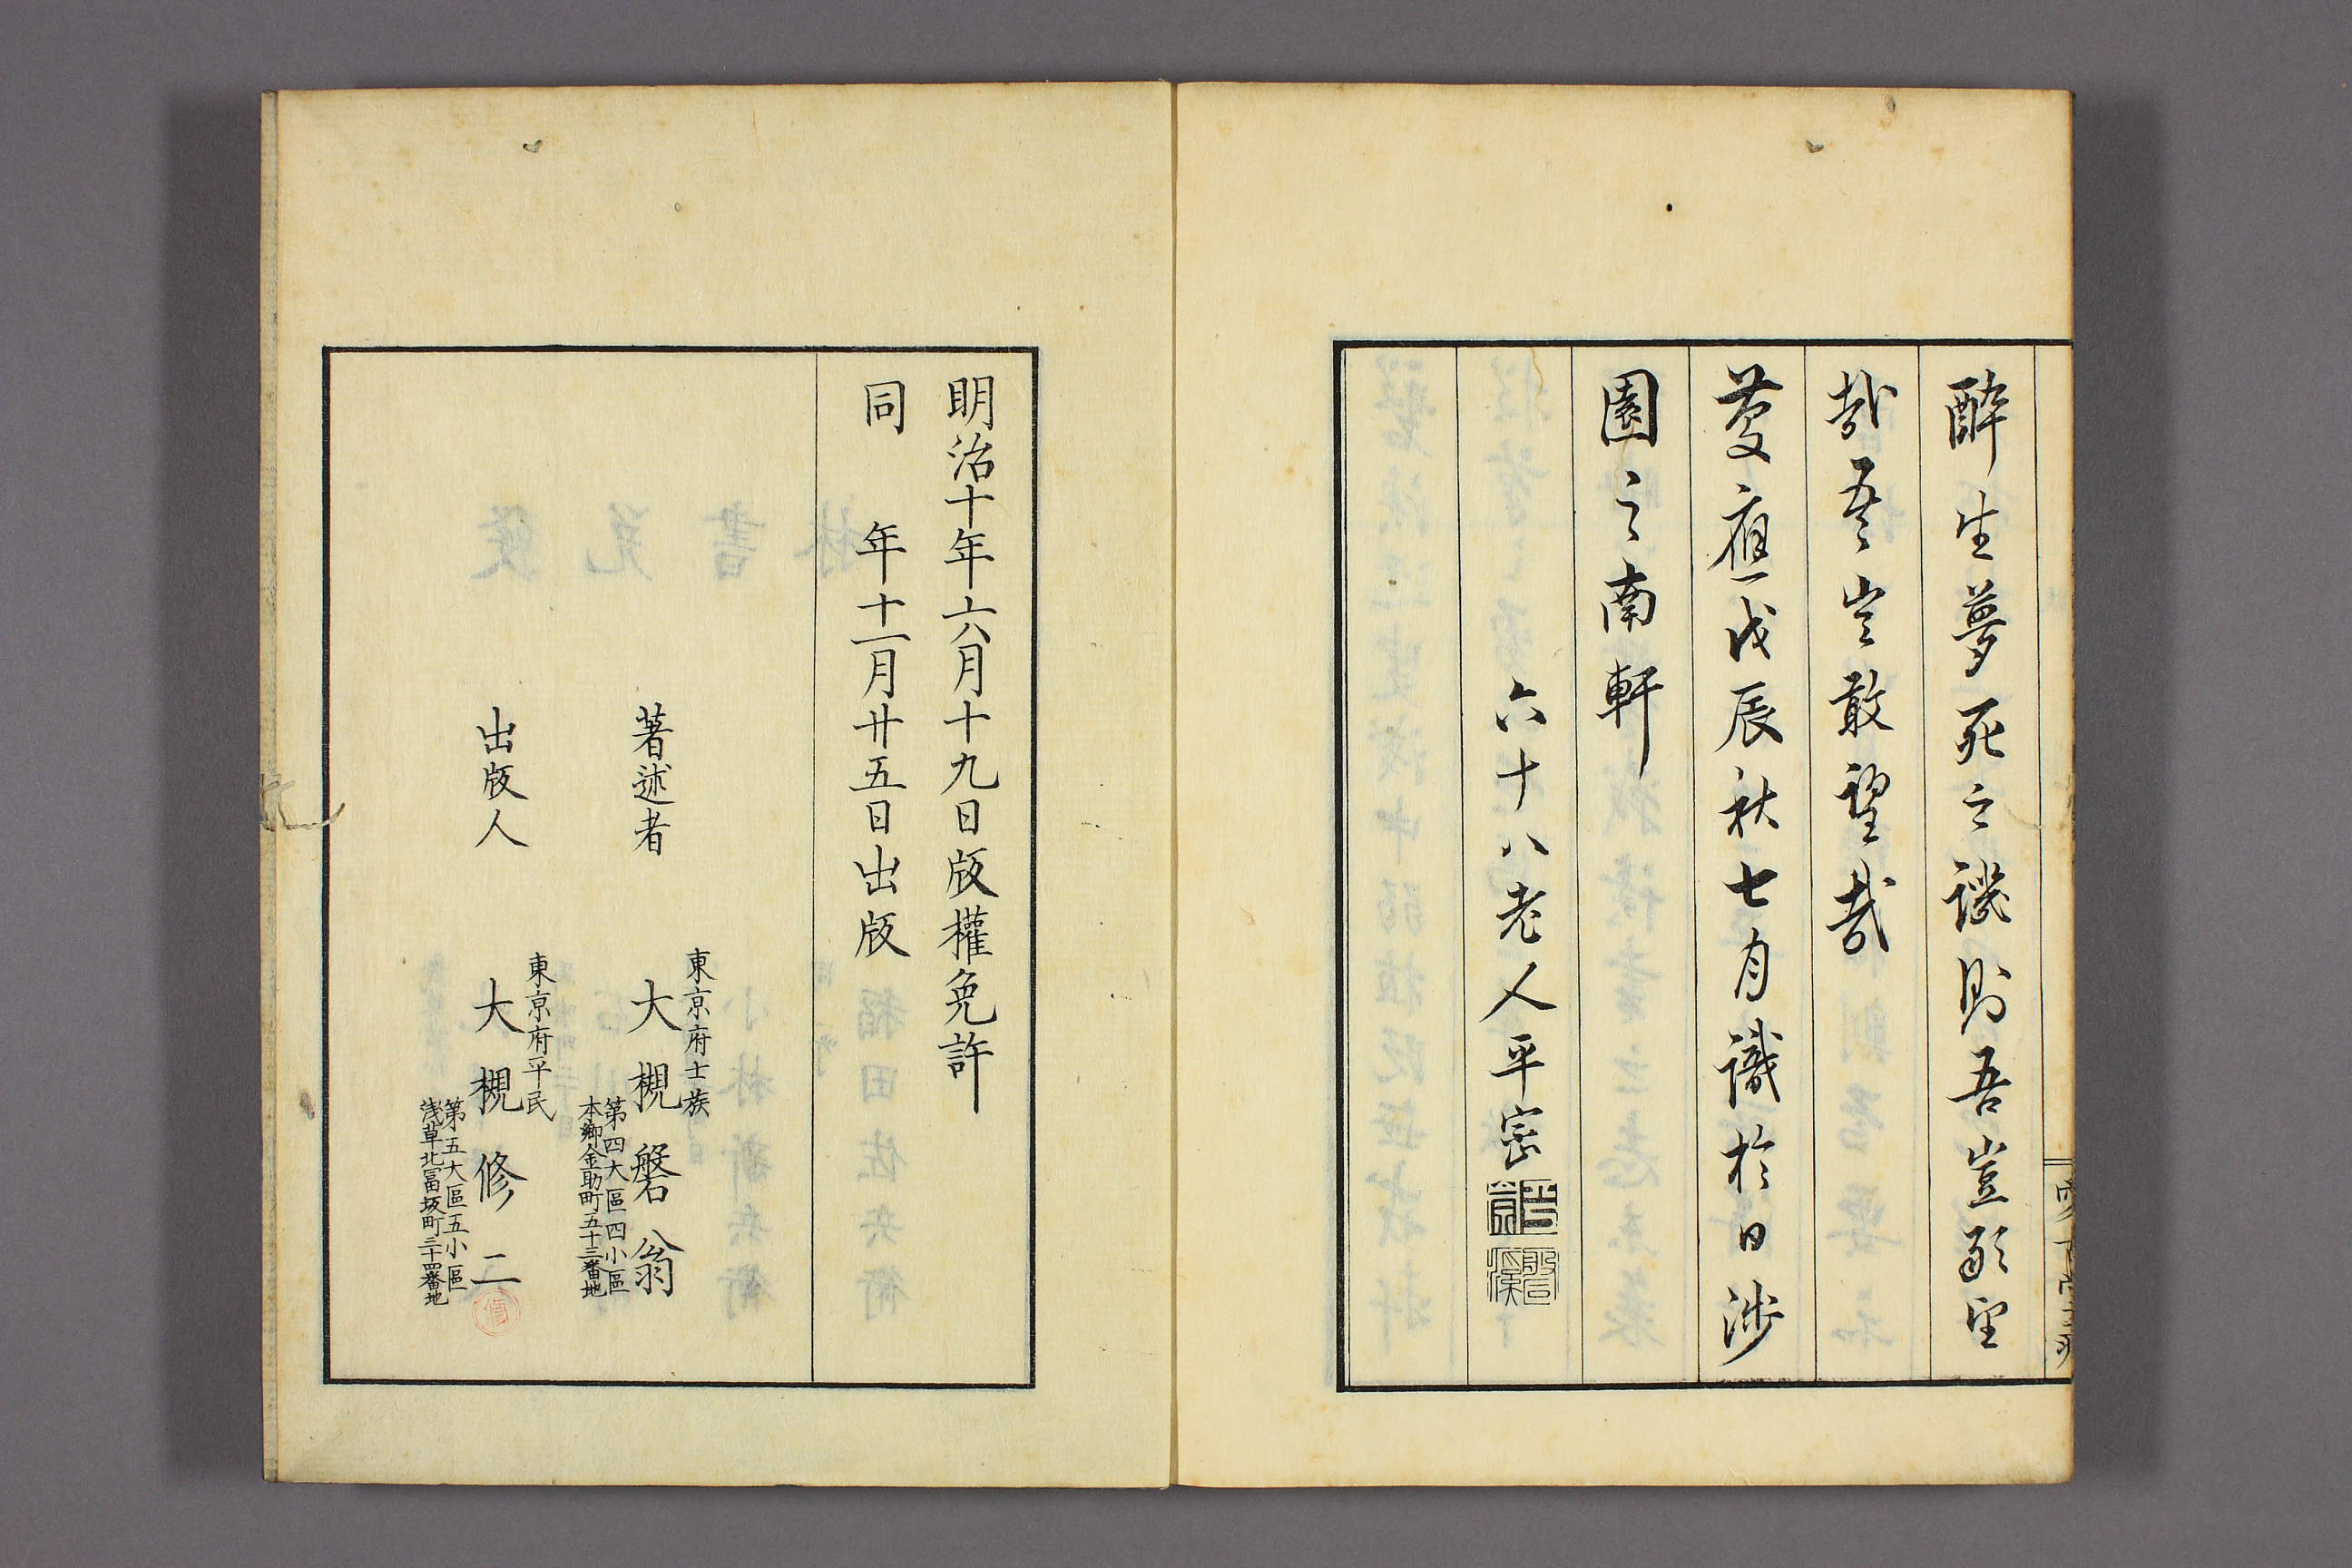 醉生夢死之譏則吾豈敢望
哉吾豈敢望哉
慶應戊辰秋七月識於日涉
園之南軒
六十八老人平崇
明治十年六月十九日版權免許
同 年十一月廿五日出版
著述者
東京府士族
大槻磐翁
第四大區四小區
本鄉金助町五十三番地
出版人
東京府平民
大槻修二
第五大區五小區
浅草北冨坂町三十四番地
修